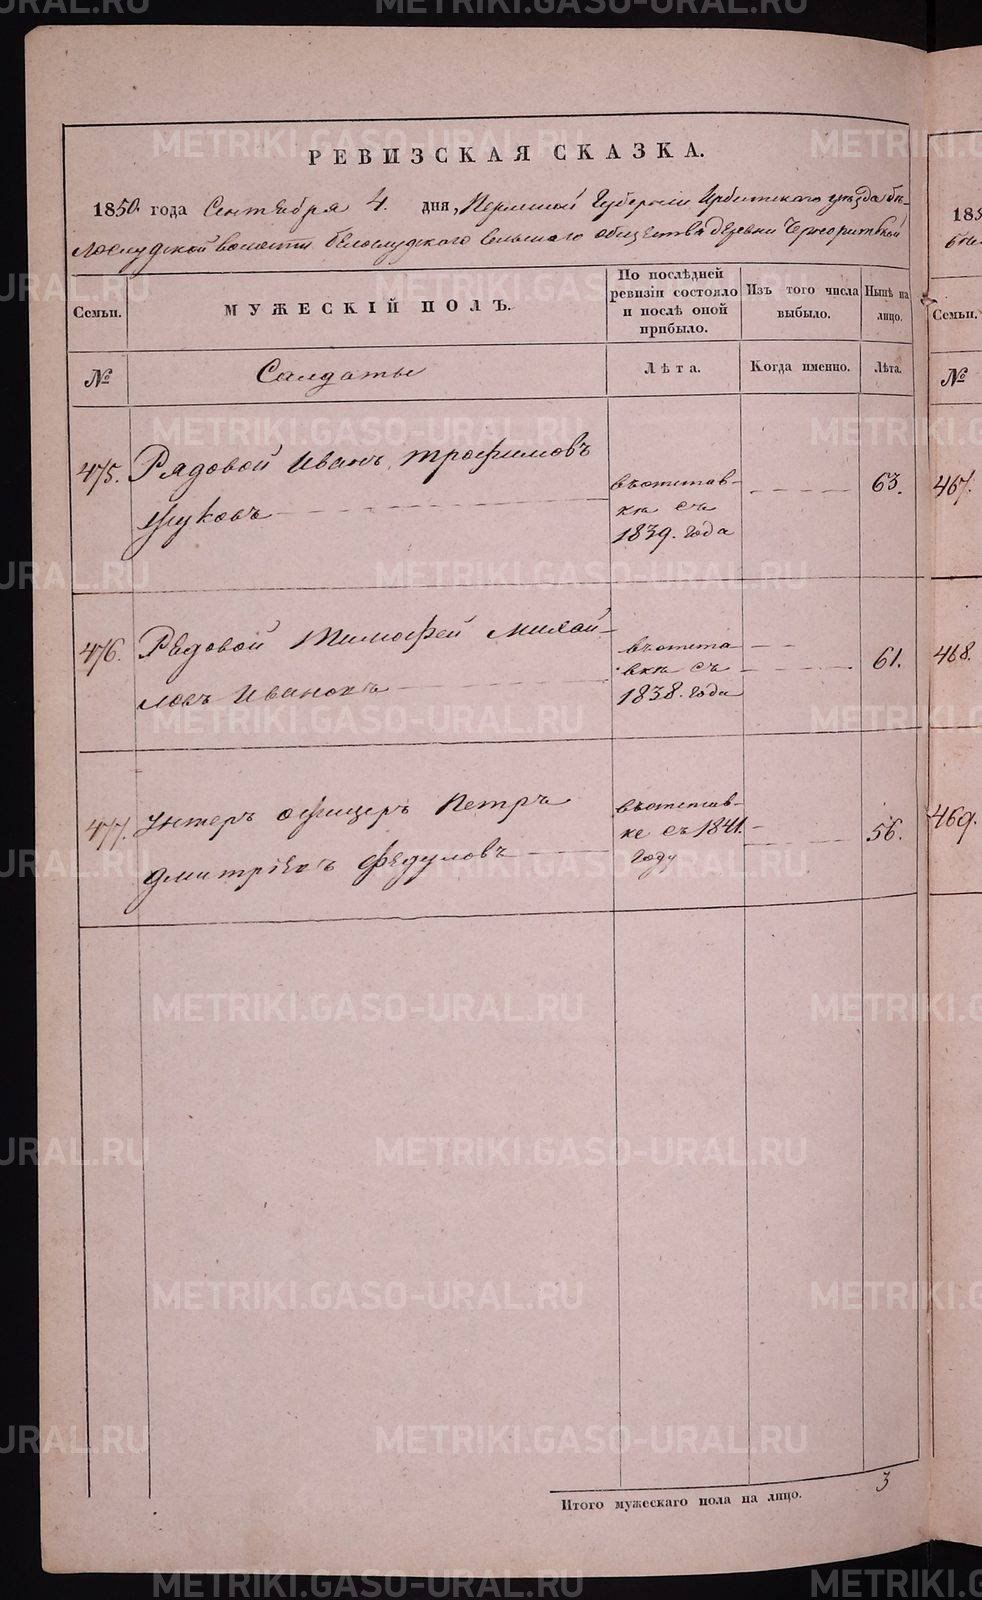 РЕВИЗСКАЯ СКАЗКА.
1850 года Сентября 4. дня, Пермской Губернии Ирбитского уезда бе-
лослудской волости белослудского сельшаго общества деревни
Семьи.
МУЖЕСКІЙ ПОЛЪ.
По послѣдней ревизіи состояло и послѣ оной прибыло.
Изъ того числа выбыло.
Нынѣ на лицо.
№
Салдаты
Лѣта.
Когда именно.
Лѣта.
475.
Рядовой Иванъ Трофимовъ
Жуковъ
въ отстав-
ки съ
1839. года
63.
476.
Рядовой Тимофей Михай-
ловъ Ивановъ
въ отста
вки съ
1838. года
61.
477.
Унтеръ офицеръ Петръ
Дмитріевъ Федуловъ
въ отстав-
ке съ 1841.
году
56.
Итого мужескаго пола на лицо.
3
185
Семьи.
№
467.
468.
469.
METRIKI.GASO-URAL.RU